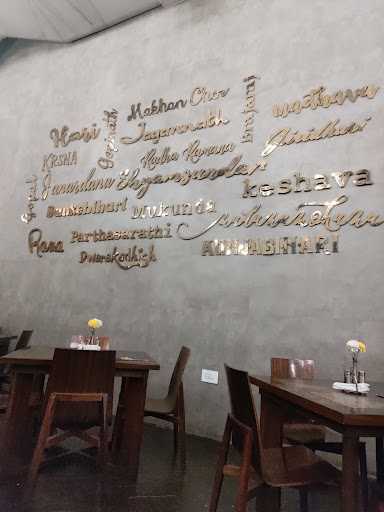 Makhan Chor
Hari
Gopinath
Jagannath
brajraj
madhava
KRSNA
Radha Ramana
Giridhari
Gopal
Janardana
Shyamsundar
keshava
Bankebihari
Mukunda
Rana
Parthasarathi
KUNJABIHARI
Dwarakadhish